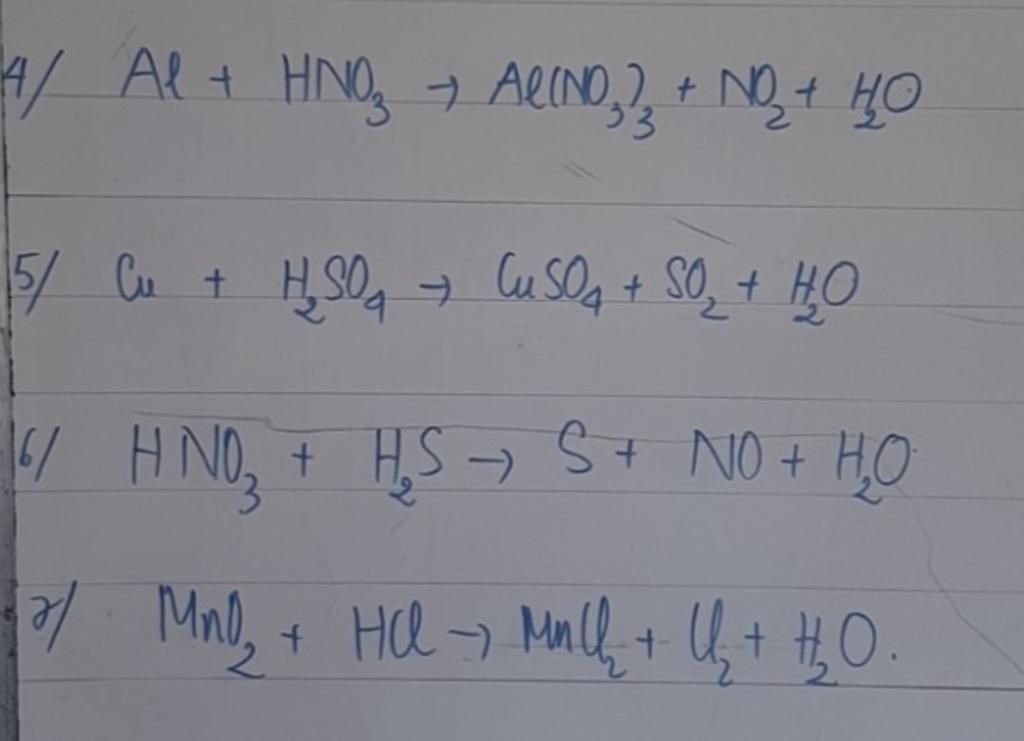 4/ Al + HNO₃ → Al(NO₃)₃ + NO₂ + H₂O
5/ Cu + H₂SO₄ → CuSO₄ + SO₂ + H₂O
6/ HNO₃ + H₂S → S + NO + H₂O
7/ MnO₂ + HCl → MnCl₂ + Cl₂ + H₂O.